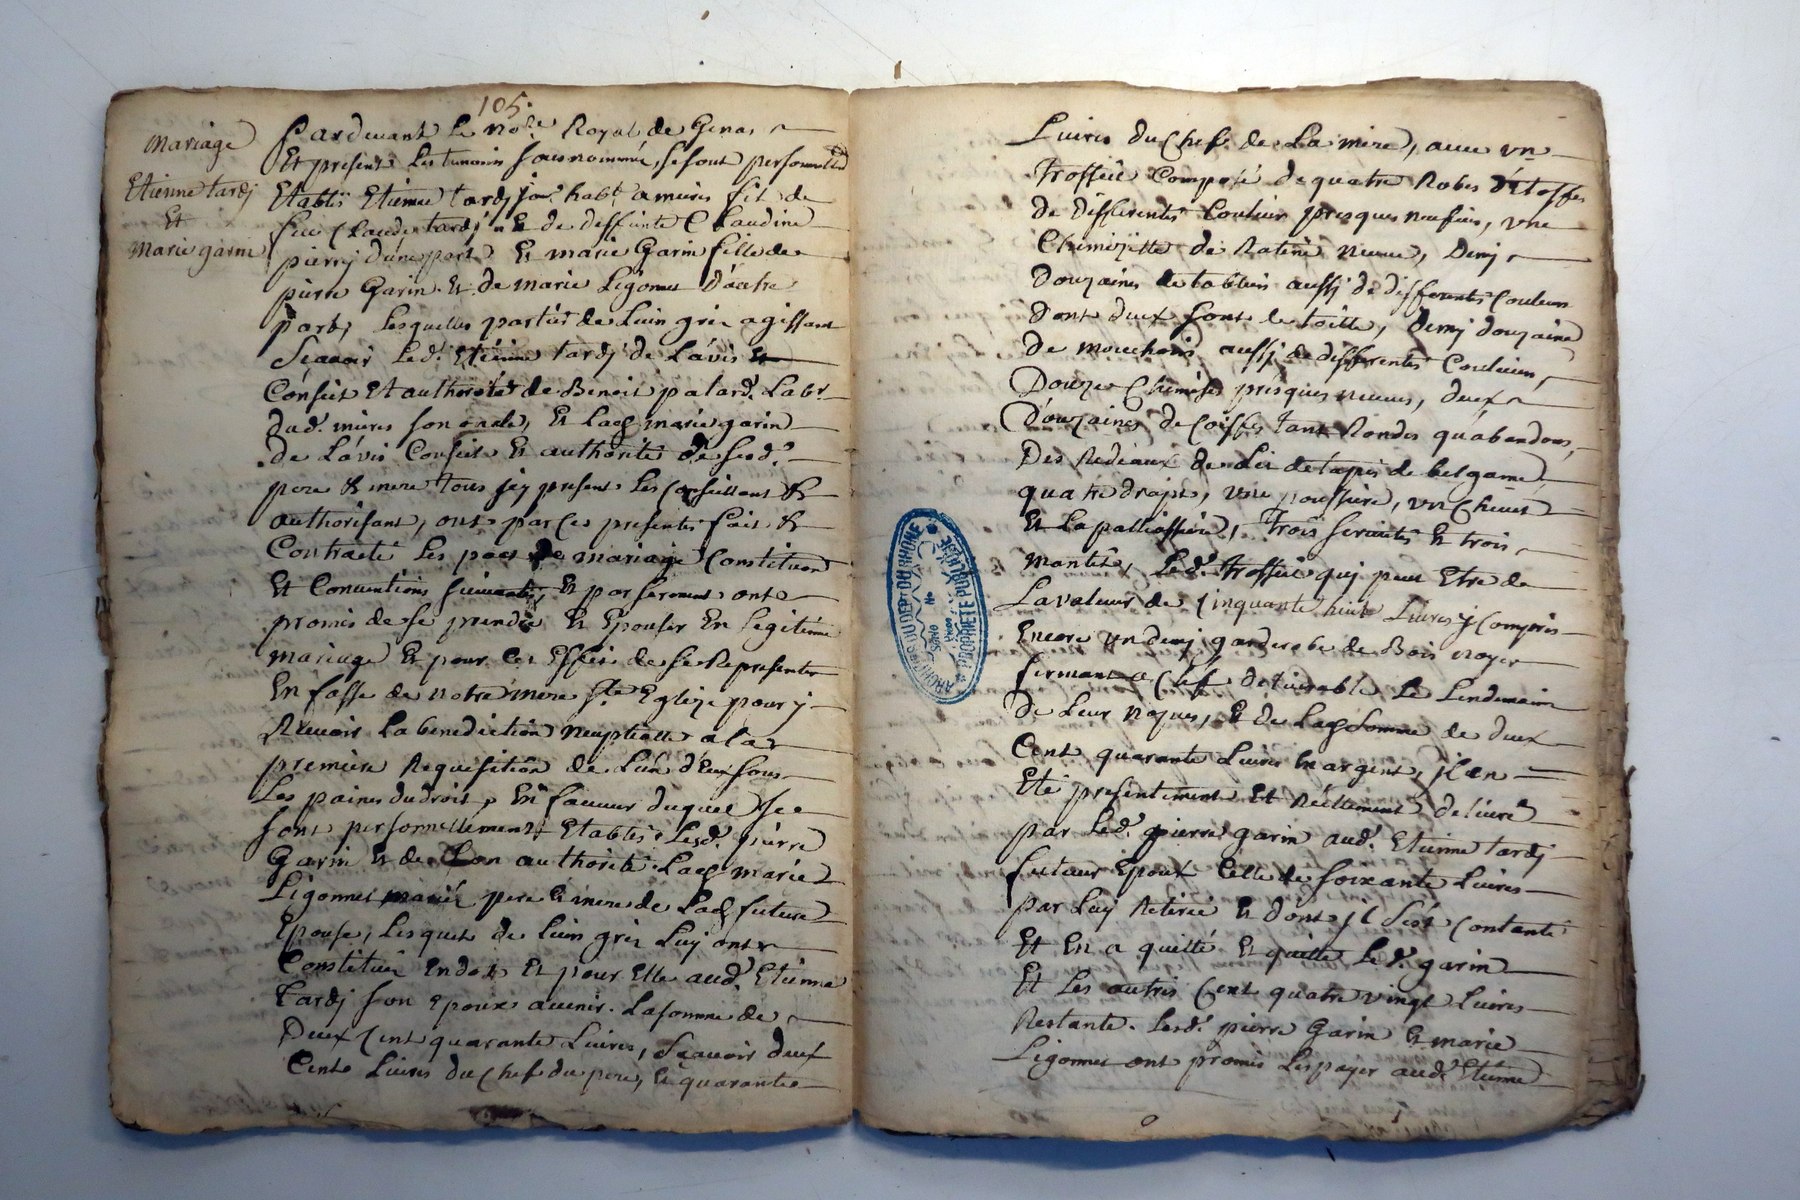 105.
Mariage
Etienne tardj
Et
Marie garin
Pardevant Le no.re Royal de Genas
Et presents Les temoins sousnommés, se sont personnellt
Etablis Etienne tardj jou.r hab.t a mures fils de
feu Claude tardj Et de deffunte Claudine
pierrj d'une part Et marie Garin fille de
pierre Garin Et de marie Ligonnet D'autre
part, Lesquelles parties de Leurs grez agissant
Sçavoir Led.t Etienne tardj de L'avis Et
Conseil Et authorité de Benoit palard Lab.r
dud.t mures son oncle, Et Lad marie garin
de L'avis Conseil Et authorité de sesd.t
pere & mere tous jcy presents Les Conseillant &
authorisant, ont par Ces presentes fait &
Contracté Les pact de mariage Constitution
Et Conventions suivantes, Et par serment ont
promis de se prendre Et Epouser En Legitime
mariage Et pour Cet Effet de se Representer
En fasse de notre mere s.te Eglize pour y
Recevoir La benediction neuptialle a la
premiere Requisition de L'un d'Eux sous
Les paines du droit, En faveur duquel se
sont personnellement Etablis Led.t pierre
Garin Et de son authorité Lad marie
Ligonnet mariés pere & mere de Lad future
Epouse, Lesquels de Leurs grez Luy ont
Constitué En dot Et pour Elle aud.t Etienne
Tardj son Epoux avenir. La somme de
Deux Cent quarante Livres, Sçavoir deux
Cents Livres du Chef du pere, & quarante
Livres du Chef de La mere, avec un
Trossiere Composé de quatre Robes d'Etoffes
de Differentes Couleurs presques neufves, une
Chemizette de Ratine neuve, Demj
Douzaines de tabliers aussj de differentes Couleurs
Dont deux sont de toille, demj douzaine
de mouchoirs aussj de differentes Couleurs,
Douze Chemises presques neuves, deux
Douzaines de Coiffes tant Rondes qu'abandons,
Des Redeaux de Lit de tapis de bergame,
quatre draps, une , un Chevet
Et La palliassiere, Trois servantes Et trois
mantes, Led.t trossiere quj peut Etre de
La valeur de Cinquante huit Livres y Compris
Encore un demj garderobe de Bois noyer
fermant a Clef delivrable Le Lendemain
de Leur nopces, Et de Lad somme de deux
Cent quarante Livres En argent, jl en
Eté presentement Et Réellement delivré
par Led.t pierre garin aud.t Etienne tardj
futeur Epoux Celle de soixante Livres
par Luy Retirée Et dont jl s'est Contanté
Et En a quitté Et quitte Led.t garin
Et Les autres Cent quatre vingt Livres
Restante. Lesd.t pierre Garin Et marie
Ligonnet ont promis Les payer aud.t Etienne
ARCHIVES DU DEP.T DU RHONE
PROPRIETE PUBLIQUE
Série
No